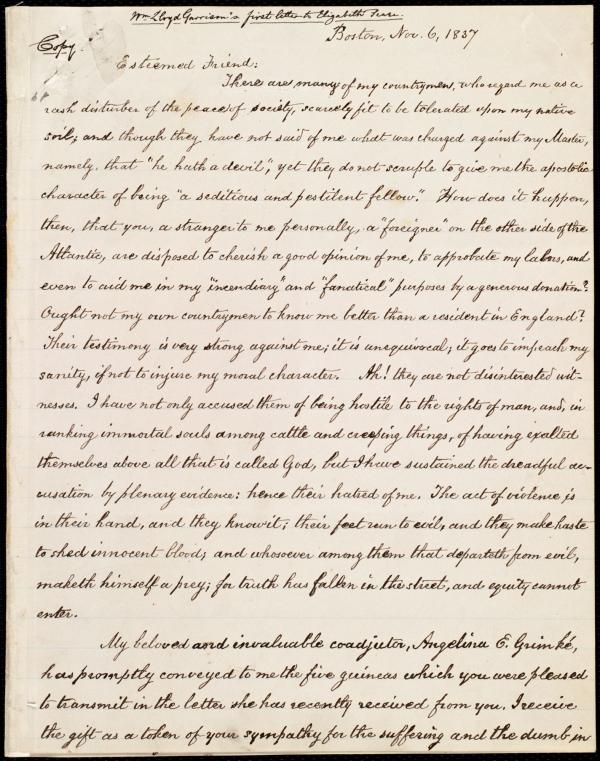 Wm Lloyd Garrison's first letter to Elizabeth Pease.
Boston, Nov. 6, 1837
Copy.
Esteemed Friend:
There are many of my countrymen, who regard me as a
rash disturber of the peace of society, scarcely fit to be tolerated upon my native
soil; and though they have not said of me what was charged against my Master,
namely, that "he hath a devil", yet they do not scruple to give me the apostolic
character of being "a seditious and pestilent fellow." How does it happen,
then, that you, a stranger to me personally, a "foreigner" on the other side of the
Atlantic, are disposed to cherish a good opinion of me, to approbate my labors, and
even to aid me in my "incendiary" and "fanatical" purposes by a generous donation?
Ought not my own countrymen to know me better than a resident in England?
Their testimony is very strong against me; it is unequivocal; it goes to impeach my
sanity, if not to injure my moral character. Ah! they are not disinterested wit-
nesses. I have not only accused them of being hostile to the rights of man, and, in
ranking immortal souls among cattle and creeping things, of having exalted
themselves above all that is called God, but I have sustained the dreadful ac-
cusation by plenary evidence: hence their hatred of me. The act of violence is
in their hand, and they know it; their feet run to evil, and they make haste
to shed innocent blood; and whosoever among them that departeth from evil,
maketh himself a prey; for truth has fallen in the street, and equity cannot
enter.
My beloved and invaluable coadjutor, Angelina E. Grimké,
has promptly conveyed to me the five guineas which you were pleased
to transmit in the letter she has recently received from you. I receive
the gift as a token of your sympathy for the suffering and the dumb in